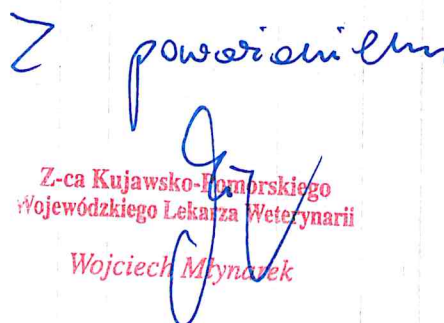 Z poważaniem
Z-ca Kujawsko-Pomorskiego
Wojewódzkiego Lekarza Weterynarii
Wojciech Młynarek